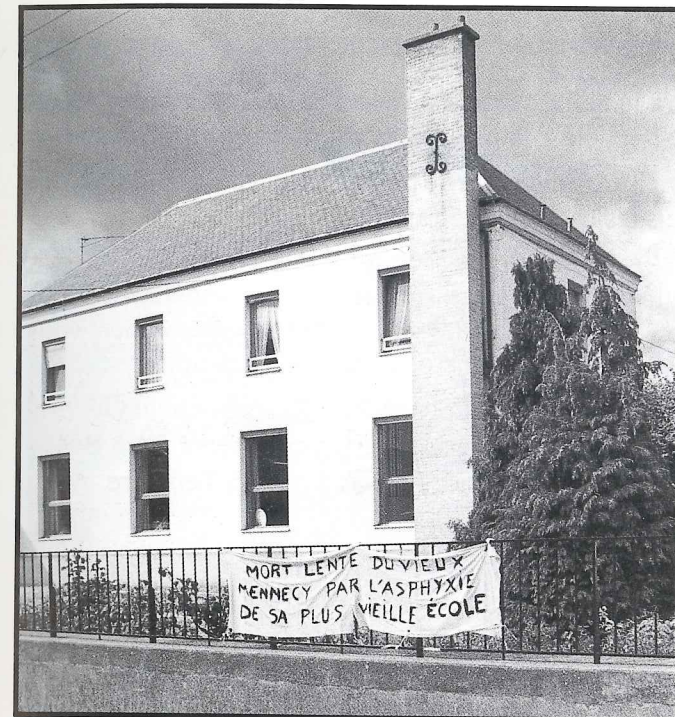 MORT LENTE DU VIEUX
MENNECY PAR L'ASPHYXIE
DE SA PLUS VIEILLE ÉCOLE